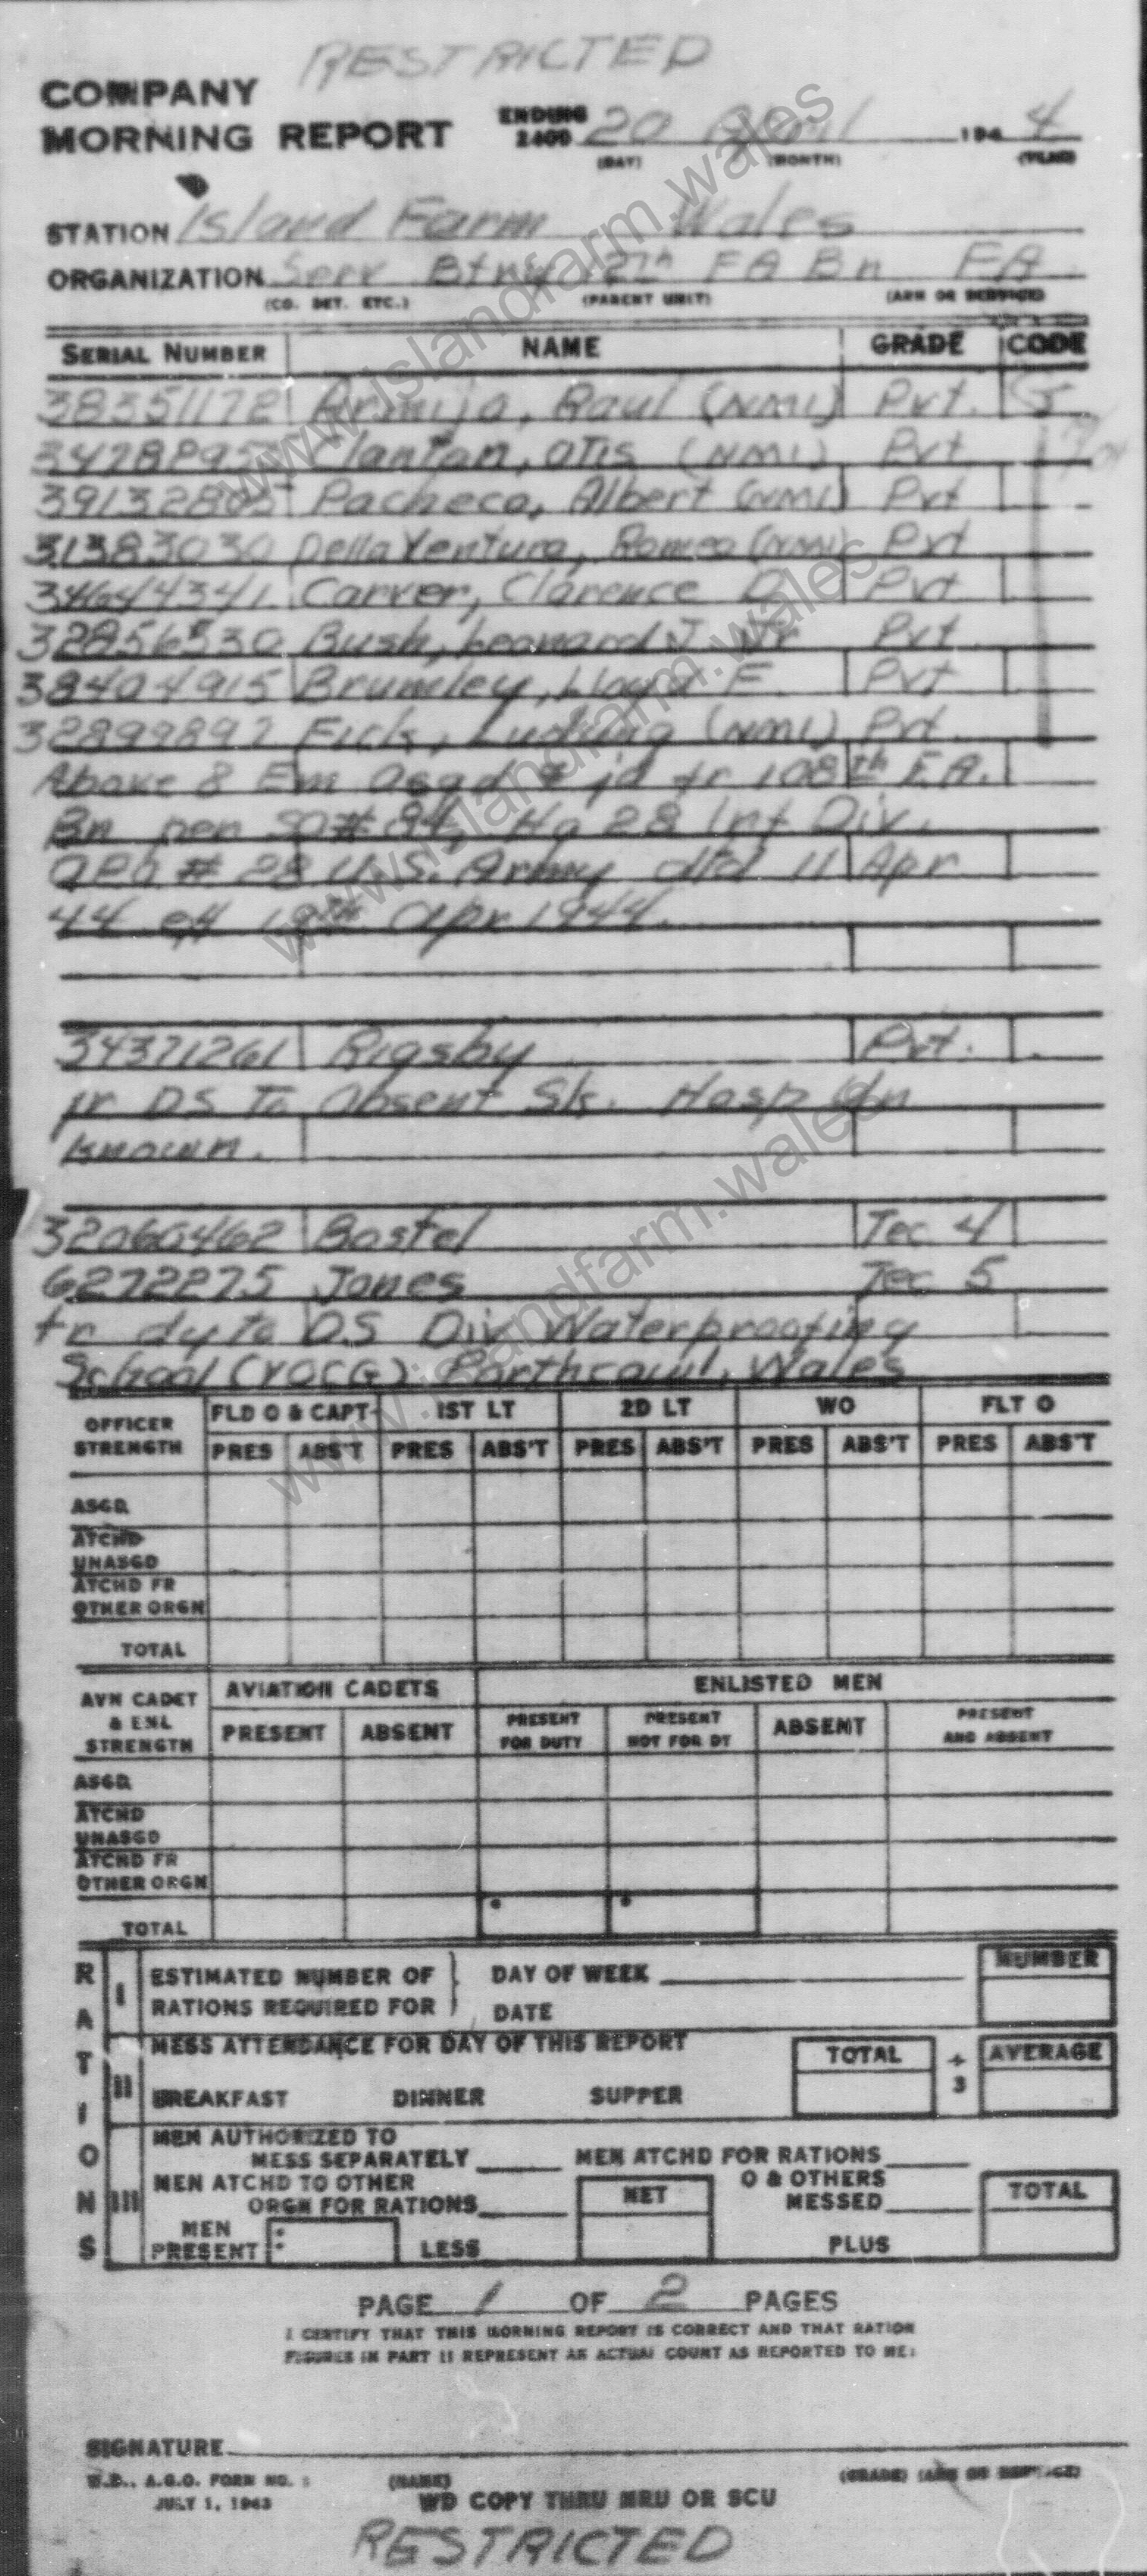 RESTRICTED
COMPANY
MORNING REPORT ENDING 2400 20 April 194 4
(DAY) (MONTH) (YEAR)
STATION Island Farm Wales
ORGANIZATION Serv Btry 2th FA Bn FA
(CO. DET. ETC.) (PARENT UNIT) (ARM OR SERVICE)
SERIAL NUMBER NAME GRADE CODE
38351172 Armijo, Raul (NMI) Pvt.
Otis (NMI) Pvt
39132805 Pacheco, Albert (NMI) Pvt
31383030 Della Ventura, Romeo (NMI) Pvt
34644341 Carver, Clarence D Pvt
32856530 Bush, Leonard J Jr Pvt
38404915 Brumley, Lloyd F. Pvt
32899897 Fick, (NMI) Pvt.
Above 8 Em asgd & jd fr 108th F.A.
Bn per SO# 94, Hq 28 Inf Div.
APO # 28 U.S. Army dtd 11 Apr
44 eff Apr 1944.
34371261 Rigsby Pvt.
fr DS To Absent Sk. Hosp Un
known.
32060462 Bostel Tec 4
6272275 Jones Tec 5
fr dy to DS Div Waterproofing
School (YOCG) Porthcawl, Wales
OFFICER STRENGTH FLD O & CAPT 1ST LT 2D LT WO FLT O
PRES ABS'T PRES ABS'T PRES ABS'T PRES ABS'T PRES ABS'T
ASGD
ATCHD
UNASGD
ATCHD FR
OTHER ORGN
TOTAL
AVN CADET & ENL STRENGTH AVIATION CADETS ENLISTED MEN
PRESENT ABSENT PRESENT FOR DUTY PRESENT NOT FOR DY ABSENT PRESENT AND ABSENT
ASGD
ATCHD
UNASGD
ATCHD FR
OTHER ORGN
TOTAL
RATIONS
I ESTIMATED NUMBER OF DAY OF WEEK NUMBER
RATIONS REQUIRED FOR DATE
II MESS ATTENDANCE FOR DAY OF THIS REPORT TOTAL ÷ 3 AVERAGE
BREAKFAST DINNER SUPPER
III MEN AUTHORIZED TO
MESS SEPARATELY MEN ATCHD FOR RATIONS
MEN ATCHD TO OTHER O & OTHERS
ORGN FOR RATIONS NET MESSED TOTAL
MEN
PRESENT LESS PLUS
PAGE 1 OF 2 PAGES
I CERTIFY THAT THIS MORNING REPORT IS CORRECT AND THAT RATION
FIGURES IN PART II REPRESENT AN ACTUAL COUNT AS REPORTED TO ME:
SIGNATURE
W.D., A.G.O. FORM NO. (NAME) (GRADE) (ARM OR SERVICE)
JULY 1, 1943 WD COPY THRU MRU OR SCU
RESTRICTED
www.islandfarm.wales
www.islandfarm.wales
www.islandfarm.wales